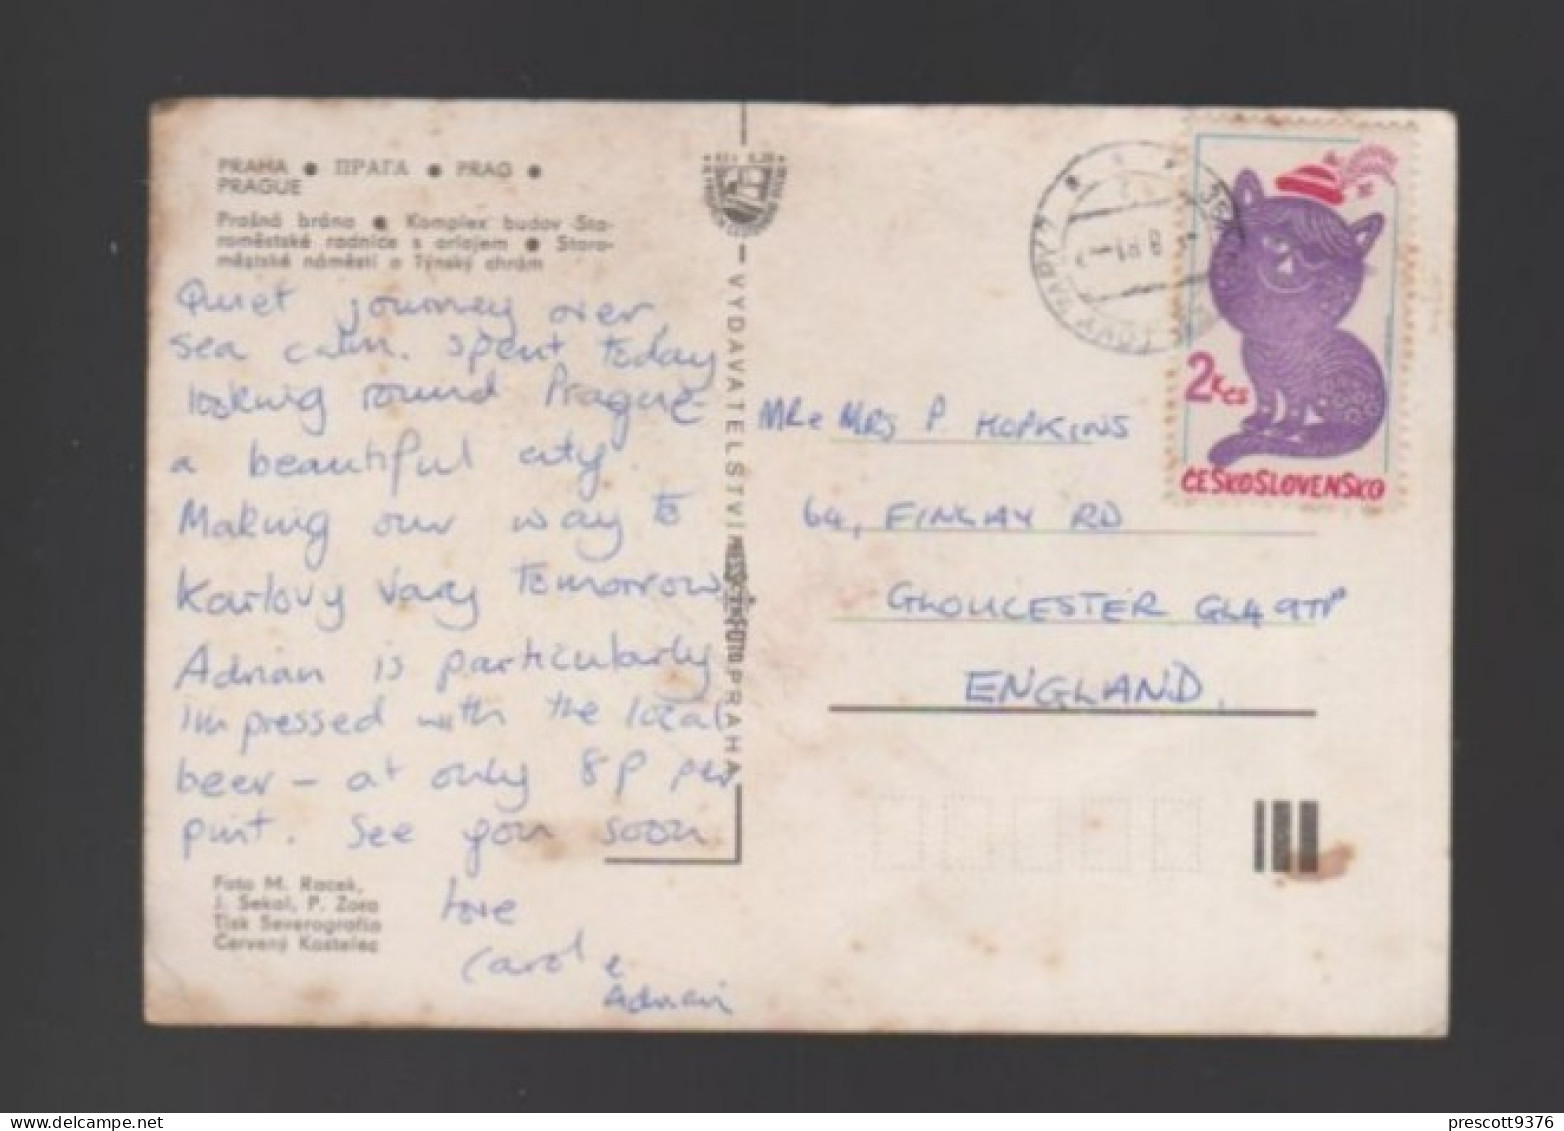 PRAHA ● ПРАГА ● PRAG ●
PRAGUE
Prašná brána ● Komplex budov Sta-
roměstské radnice s orlojem ● Staro-
městské náměstí a Týnský chrám
Quiet journey over,
sea calm. Spent today
looking round Prague
a beautiful city.
Making our way to
Karlovy Vary tomorrow.
Adrian is particularly
impressed with the local
beer – at only 8p per
pint. See you soon
love
Carol e
Adrian
Foto M. Racek,
J. Sekal, P. Zora
Tisk Severografia
Červený Kostelec
VYDAVATELSTVÍ PRAHA
MR e MRS P HOPKINS
64, FINLAY RD
GLOUCESTER GL4 9TP
ENGLAND.
2 Kčs
ČESKOSLOVENSKO
KARLOVY VARY 2
prescott9376